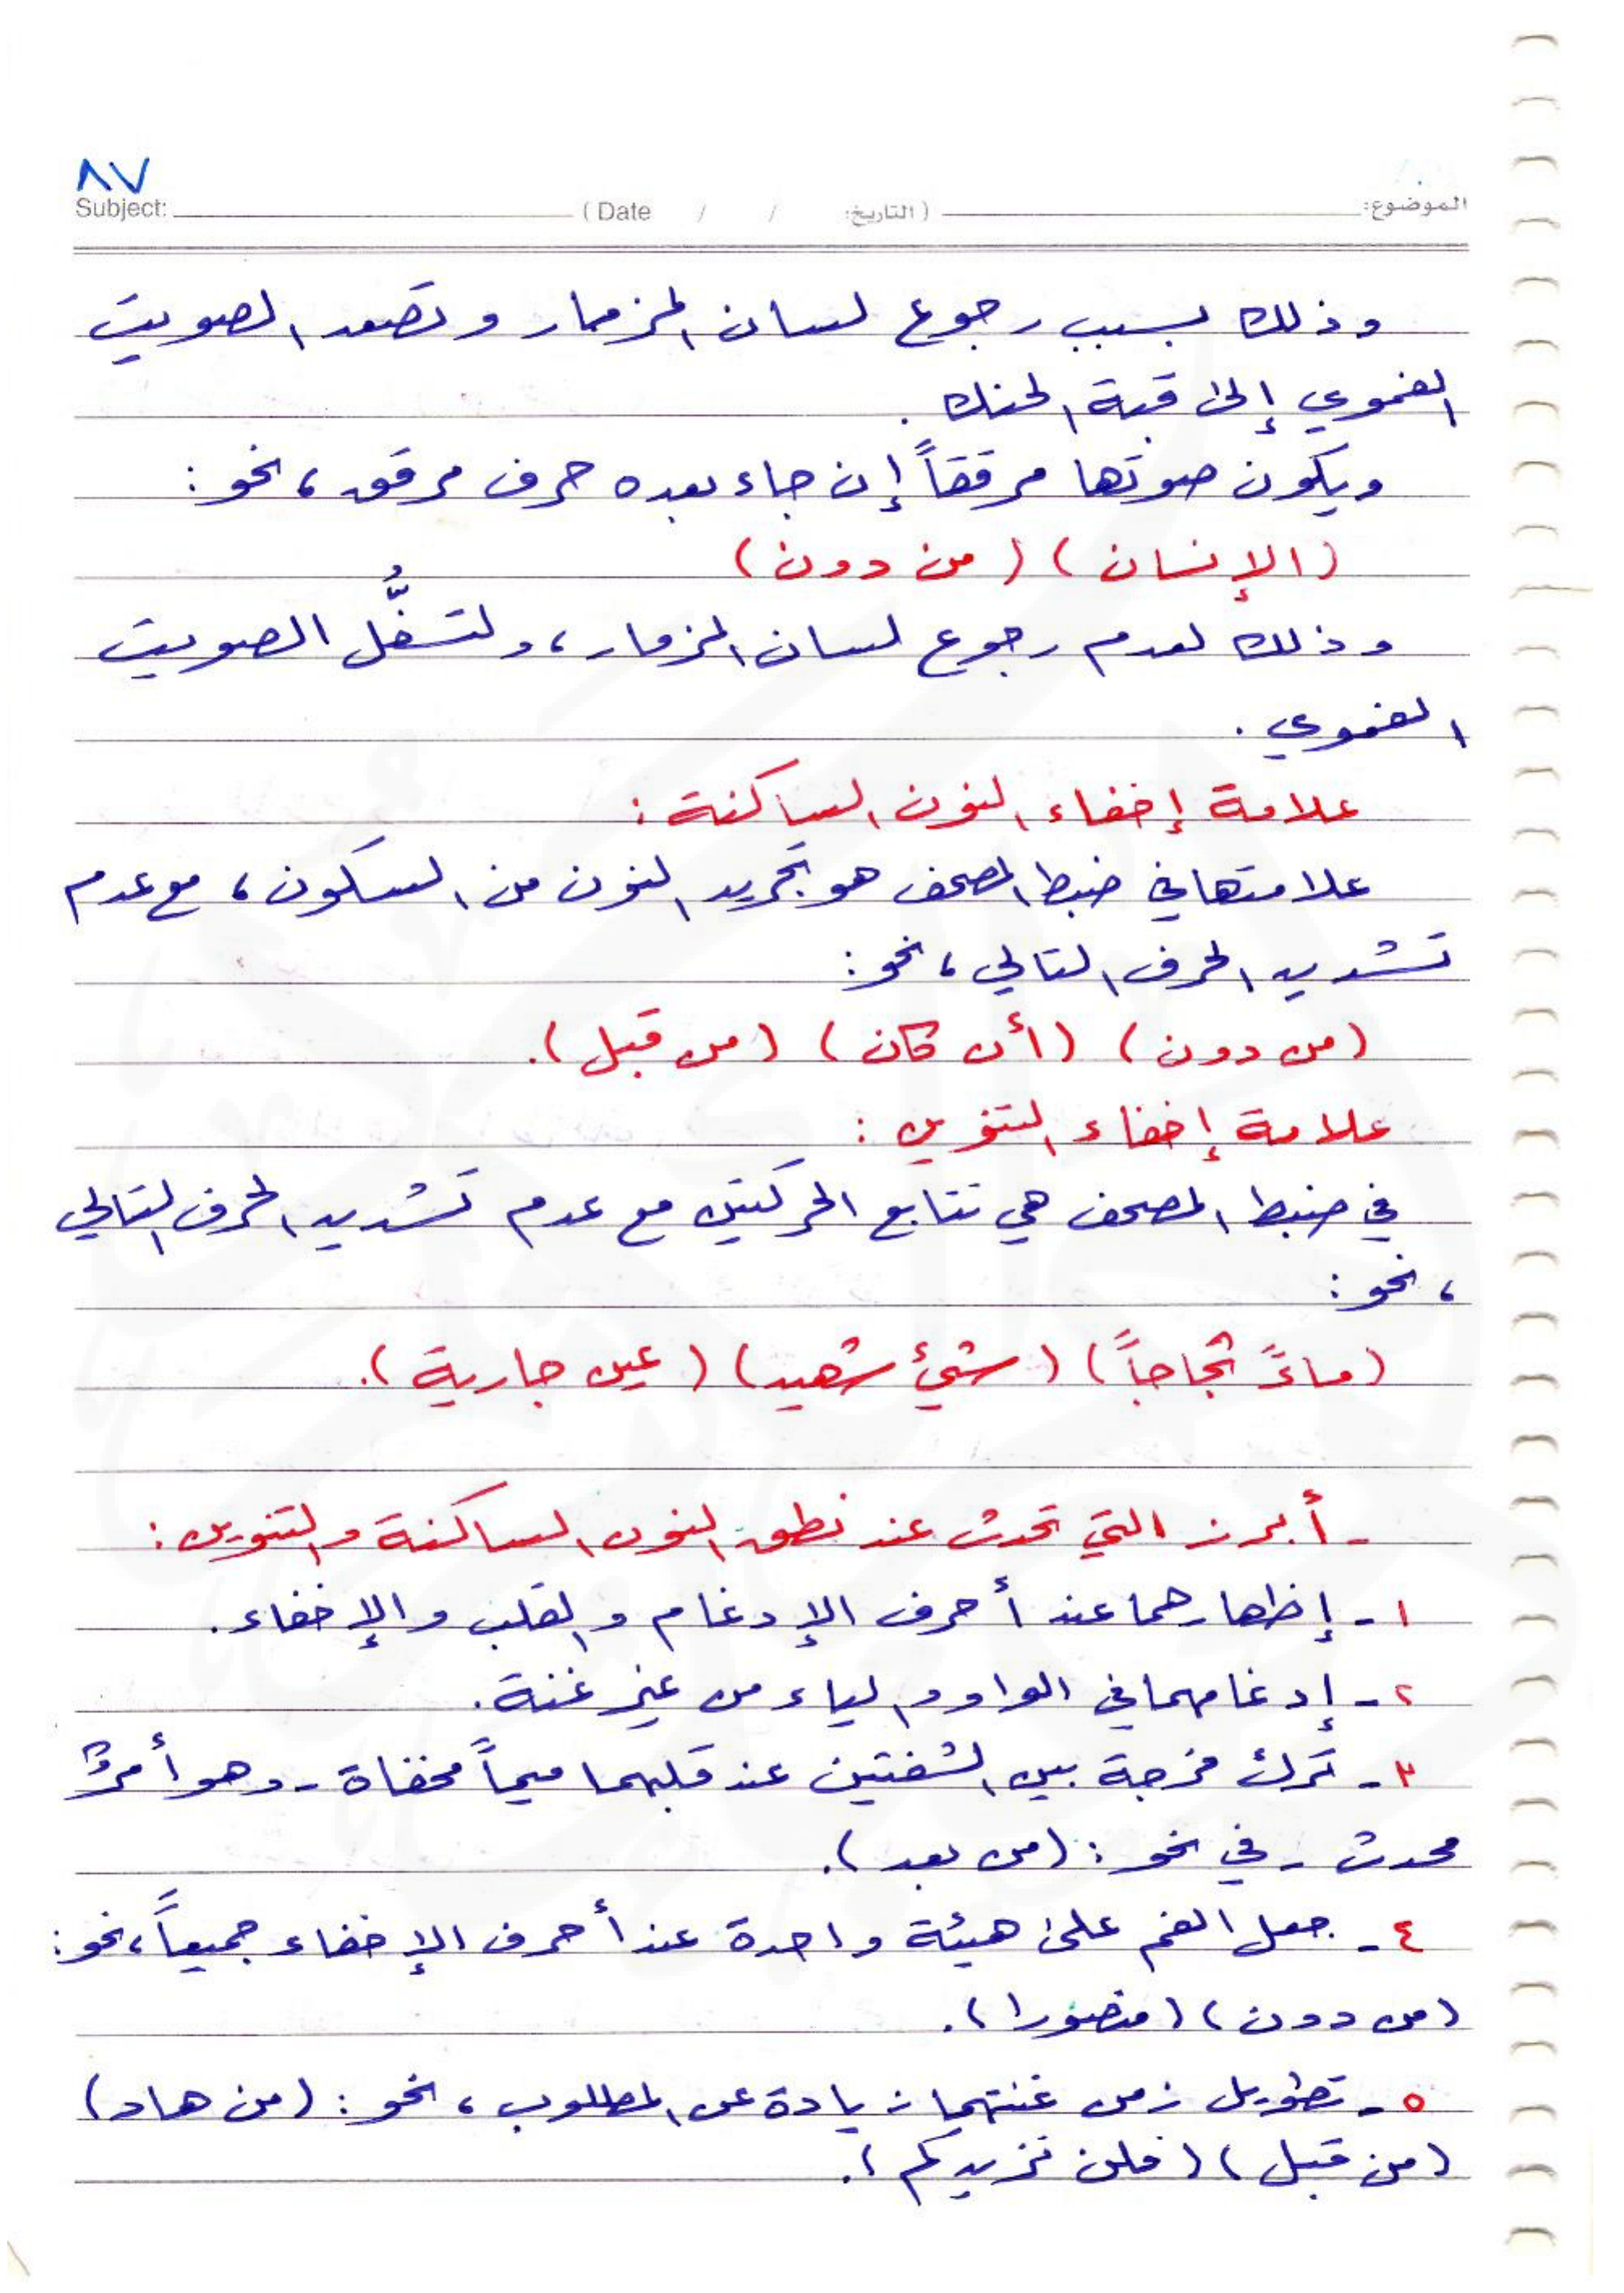 ٨٧
Subject: (Date / / التاريخ:) الموضوع:
وذلك بسبب رجوع لسان المزمار وتصعد الصويت
الفموي إلى قبة الحنك .
ويكون صوتها مرققاً إن جاء بعده حرف مرقق، نحو :
(الإنسان) (من دون)
وذلك لعدم رجوع لسان المزمار، ولتسفُّل الصويت
الفموي .
علامة إخفاء النون الساكنة :
علامتها في ضبط المصحف هو تجريد النون من السكون، مع عدم
تشديد الحرف التالي، نحو :
(من دون) (أن كان) (من قبل).
علامة إخفاء التنوين :
في ضبط المصحف هي تتابع الحركتين مع عدم تشديد الحرف التالي
، نحو :
(ماءً ثجاجاً) (شيءٔ شهيد) (عين جارية).
- أبرز التي تحدث عند نطق النون الساكنة والتنوين :
١- إظهارهما عند أحرف الإدغام والقلب والإخفاء.
٢- إدغامهما في الواو والياء من غير غنة.
٣- ترك فرجة بين الشفتين عند قلبهما ميماً مخفاة - وهو أمرٌ
محدث - في نحو : (من بعد).
٤- جعل الفم على هيئة واحدة عند أحرف الإخفاء جميعاً، نحو :
(من دون) (منصورا).
٥- تطويل زمن غنتهما زيادة عن المطلوب، نحو : (من هاد)
(من قبل) (فلن نزيدكم).